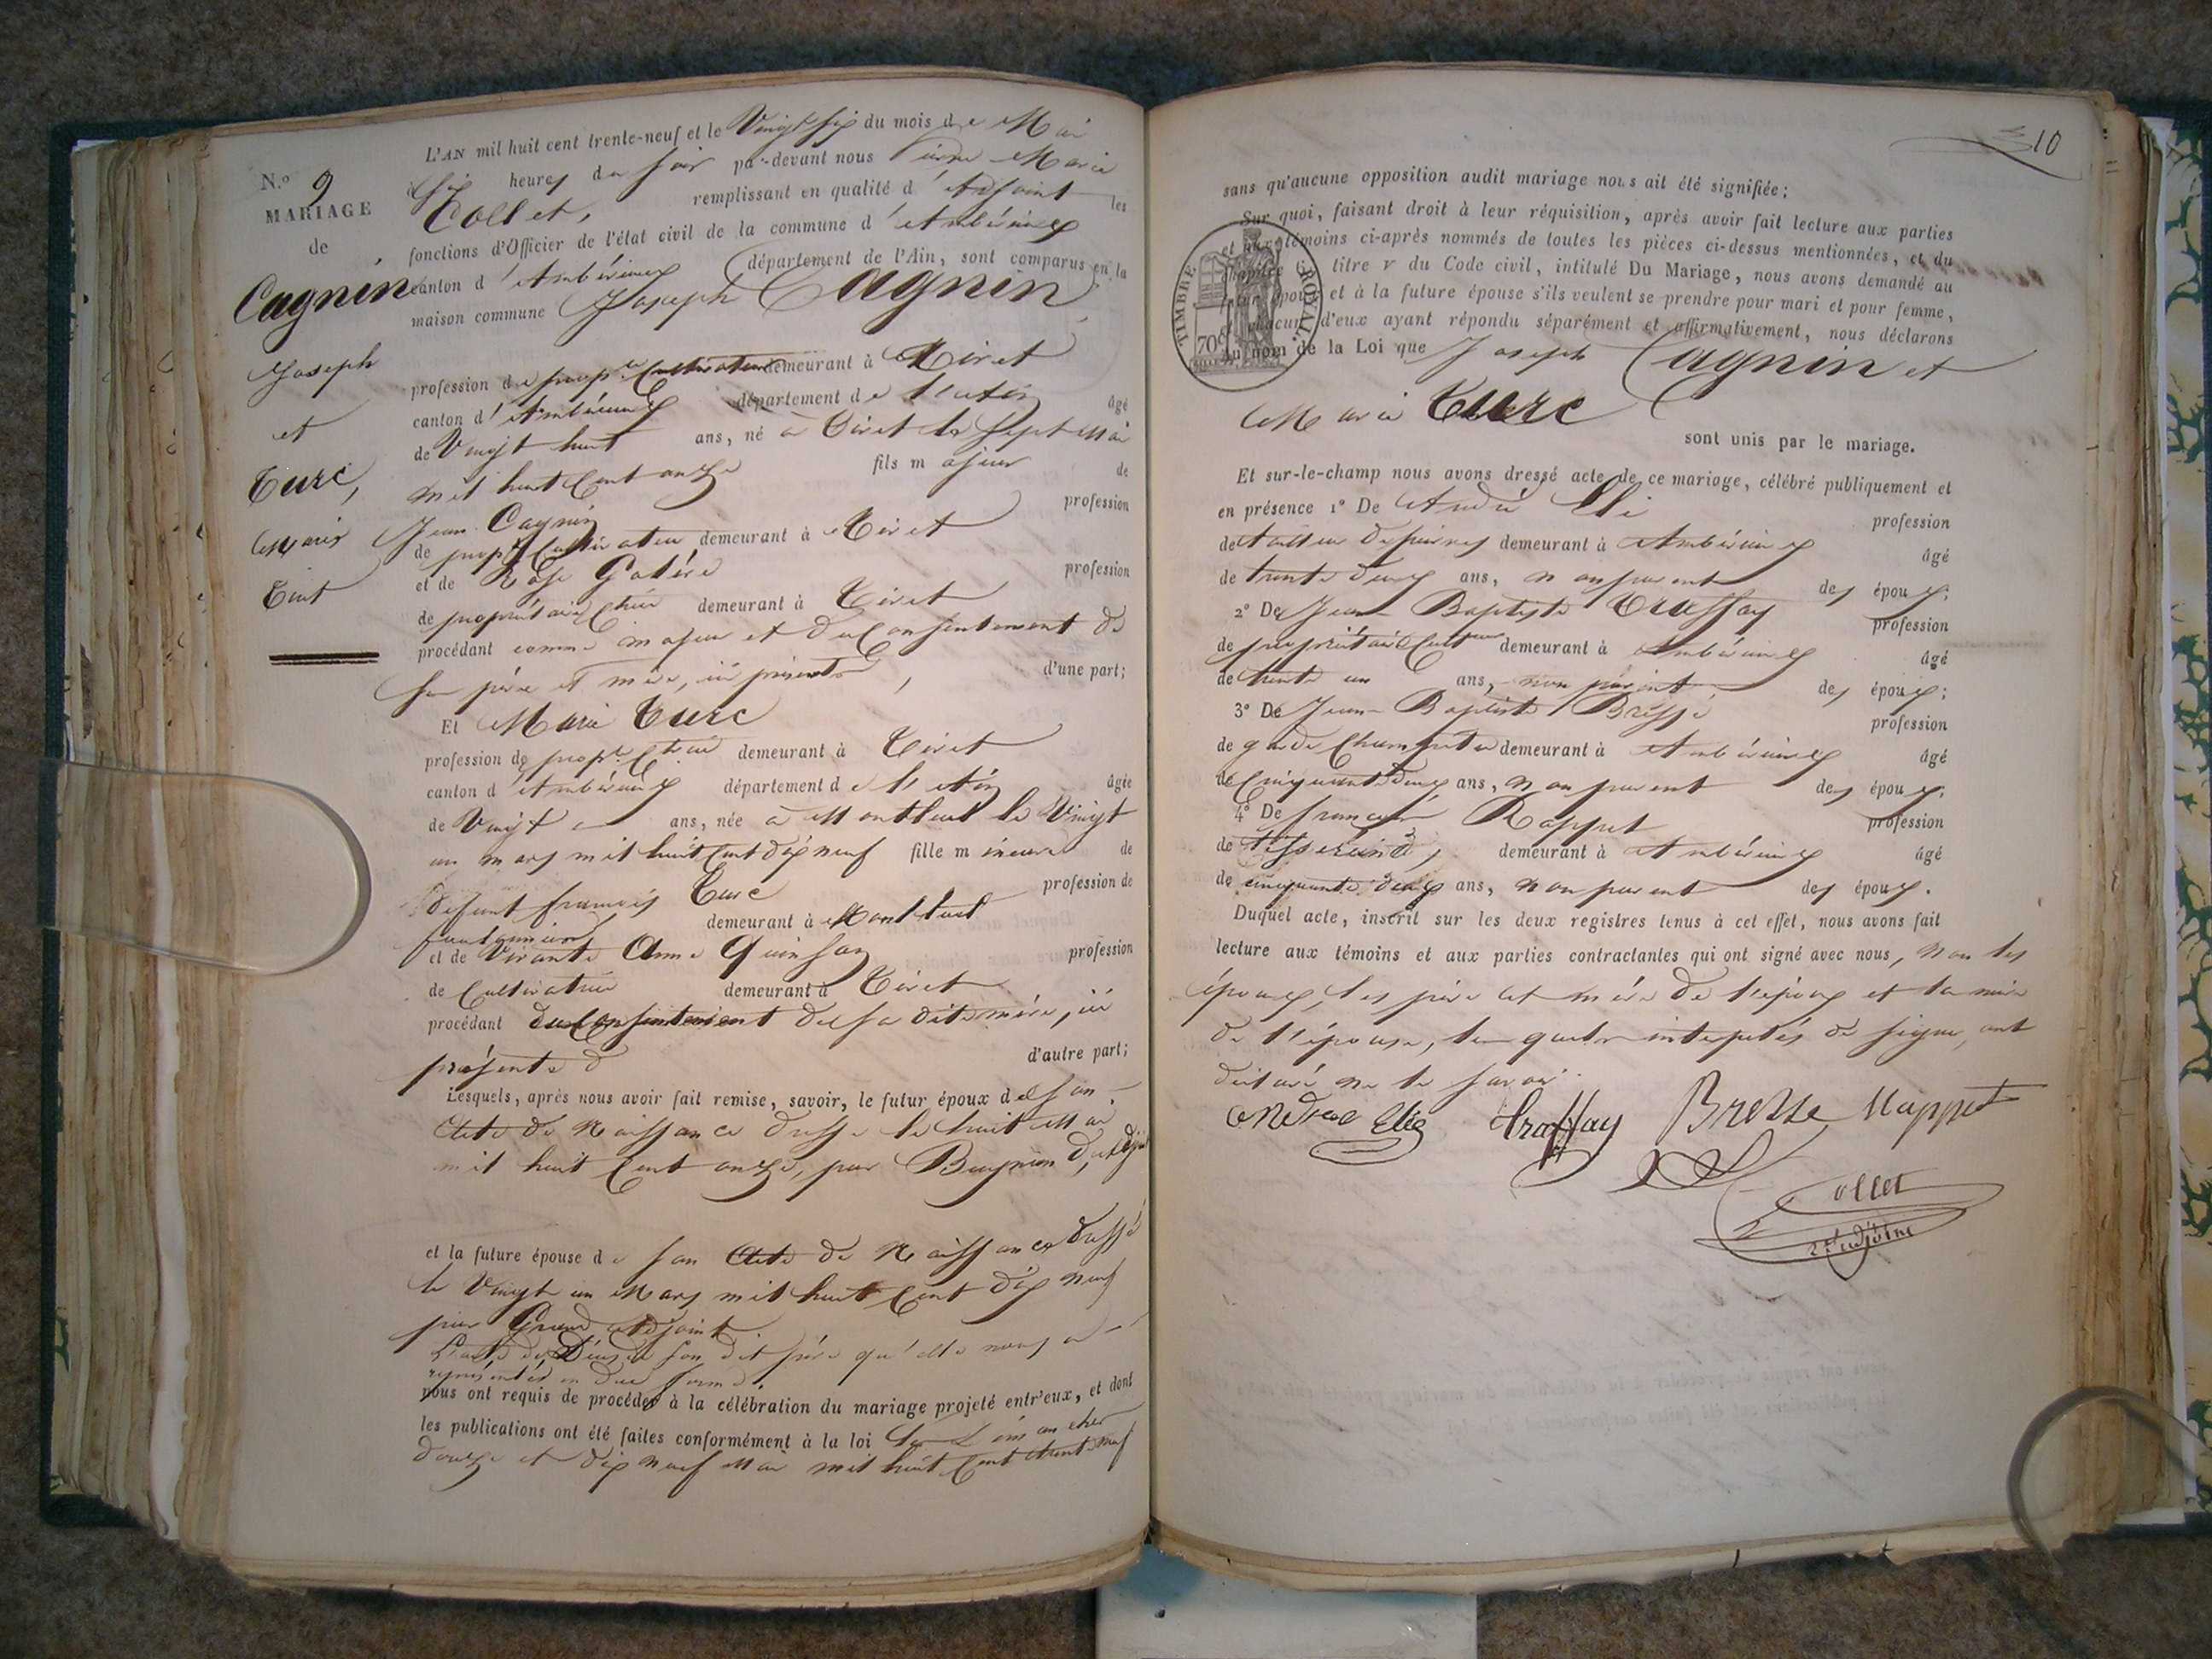 N.o 9
MARIAGE
de
Cagnin
Joseph
et
Turc,
Marie
Tiret
L'AN mil huit cent trente-neuf et le Vingt six du mois de Mai
à Six heures du soir par-devant nous Pierre Marie
Collet, remplissant en qualité d'Adjoint les
fonctions d'Officier de l'état civil de la commune d'Ambérieux
canton d'Ambérieux département de l'Ain, sont comparus en la
maison commune Joseph Cagnin,
profession de prop.re Cultivateur demeurant à Tiret
canton d'Ambérieux département de l'Ain âgé
de Vingt huit ans, né à Tiret le sept Mai
mil huit Cent onze fils majeur de
Jean Cagnin profession
de prop.re Cultivateur demeurant à Tiret
et de Rose profession
de propriétaire demeurant à Tiret
procédant comme majeur et du Consentement de
ses père et mère, ici présents, d'une part;
Et Marie Turc
profession de prop.re demeurant à Tiret
canton d'Ambérieux département de l'Ain âgée
de Vingt ans, née à Montluel le Vingt
un mars mil huit Cent dix neuf fille mineure de
défunt françois Turc profession de
demeurant à Montluel
et de Vivante Anne Quinson profession
de Cultivatrice demeurant à Tiret
procédant du Consentement de sa dite mère, ici
présente d'autre part;
Lesquels, après nous avoir fait remise, savoir, le futur époux de son
Acte de Naissance dressé le huit Mai
mil huit Cent onze, par
et la future épouse de son Acte de Naissance dressé
le Vingt un Mars mil huit Cent dix neuf
par Grand Adjoint
L'acte de Décès de son dit père qu'elle nous a
représentés en due forme.
nous ont requis de procéder à la célébration du mariage projeté entr'eux, et dont
les publications ont été faites conformément à la loi les Dimanches
douze et dix neuf Mai mil huit Cent trente neuf
10
sans qu'aucune opposition audit mariage nous ait été signifiée;
Sur quoi, faisant droit à leur réquisition, après avoir fait lecture aux parties
et aux témoins ci-après nommés de toutes les pièces ci-dessus mentionnées, et du
chapitre 6, titre v du Code civil, intitulé Du Mariage, nous avons demandé au
futur époux et à la future épouse s'ils veulent se prendre pour mari et pour femme,
et chacun d'eux ayant répondu séparément et affirmativement, nous déclarons
au nom de la Loi que Joseph Cagnin et
Marie Turc
sont unis par le mariage.
TIMBRE ROYAL
70c
Et sur-le-champ nous avons dressé acte de ce mariage, célébré publiquement et
en présence 1o De André Elie profession
de tailleur de pierres demeurant à Ambérieux âgé
de trente deux ans, non parent des époux;
2o De Jean Baptiste Traffay profession
de propriétaire Cult.eur demeurant à Ambérieux âgé
de trente un ans, non parent, des époux;
3o De Jean Baptiste Bresse profession
de garde Champêtre demeurant à Ambérieux âgé
de Cinquante deux ans, non parent des époux;
4o De françois Rappet profession
de tisserand, demeurant à Ambérieux âgé
de cinquante deux ans, non parent des époux.
Duquel acte, inscrit sur les deux registres tenus à cet effet, nous avons fait
lecture aux témoins et aux parties contractantes qui ont signé avec nous, non les
époux, les père et mère de l'époux et la mère
de l'épouse, lesquels interpelés de signer, ont
déclaré ne le savoir.
Andree Elie Traffay Bresse Rappet
Collet
adjoint